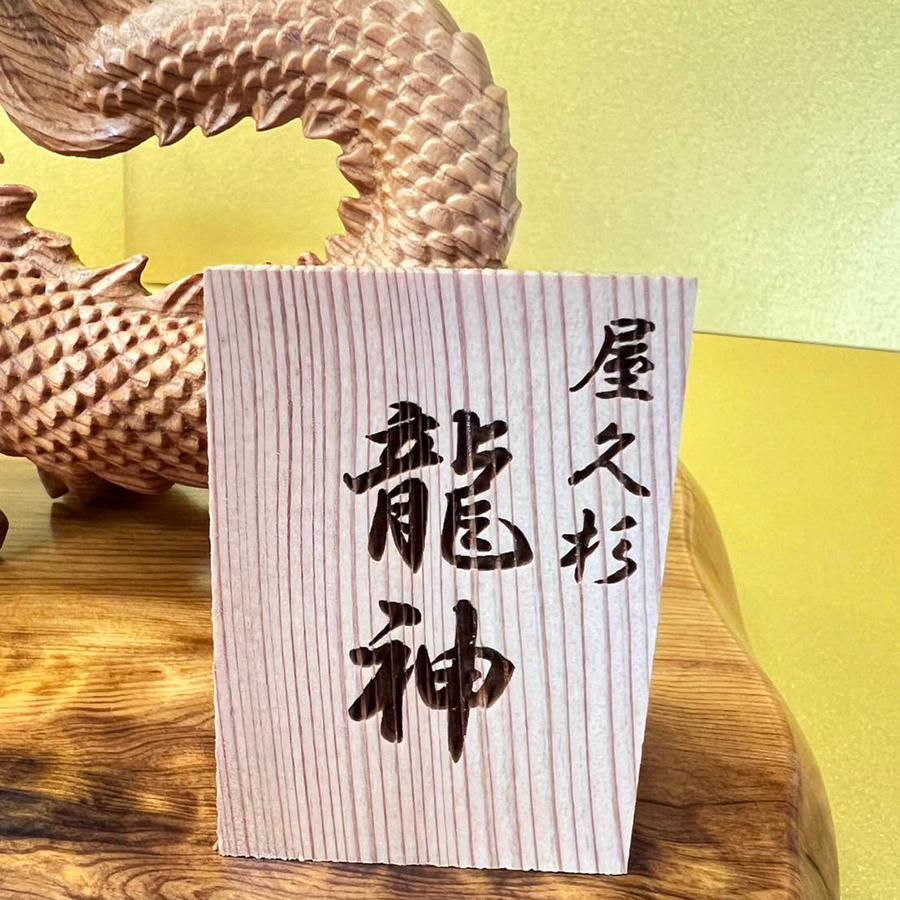 屋久杉
龍神